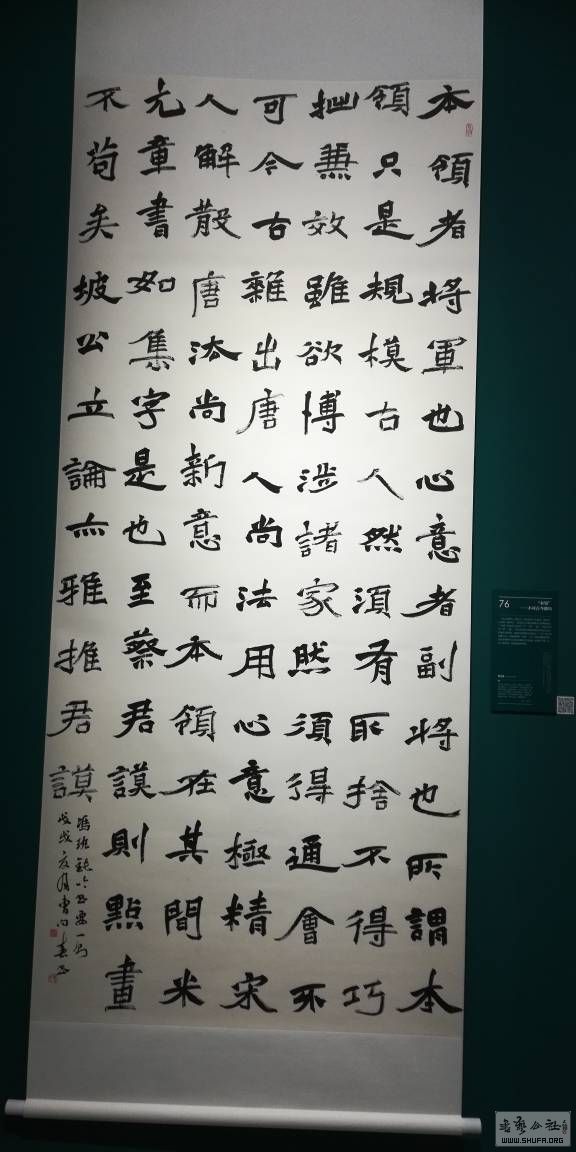 本領者將軍也心意者副將也所謂本
領只是規模古人然須有取捨不得巧
拙兼效雖欲博涉諸家然須得通會不
可今古雜出唐人尚法用心意極精宋
人解散唐法尚新意而本領在其間米
元章書如集字是也至蔡君謨則點畫
不苟矣坡公立論亦雅推君謨
馮班鈍吟書要一則
戌夏月曹向春
76
書藝公社
WWW.SHUFA.ORG